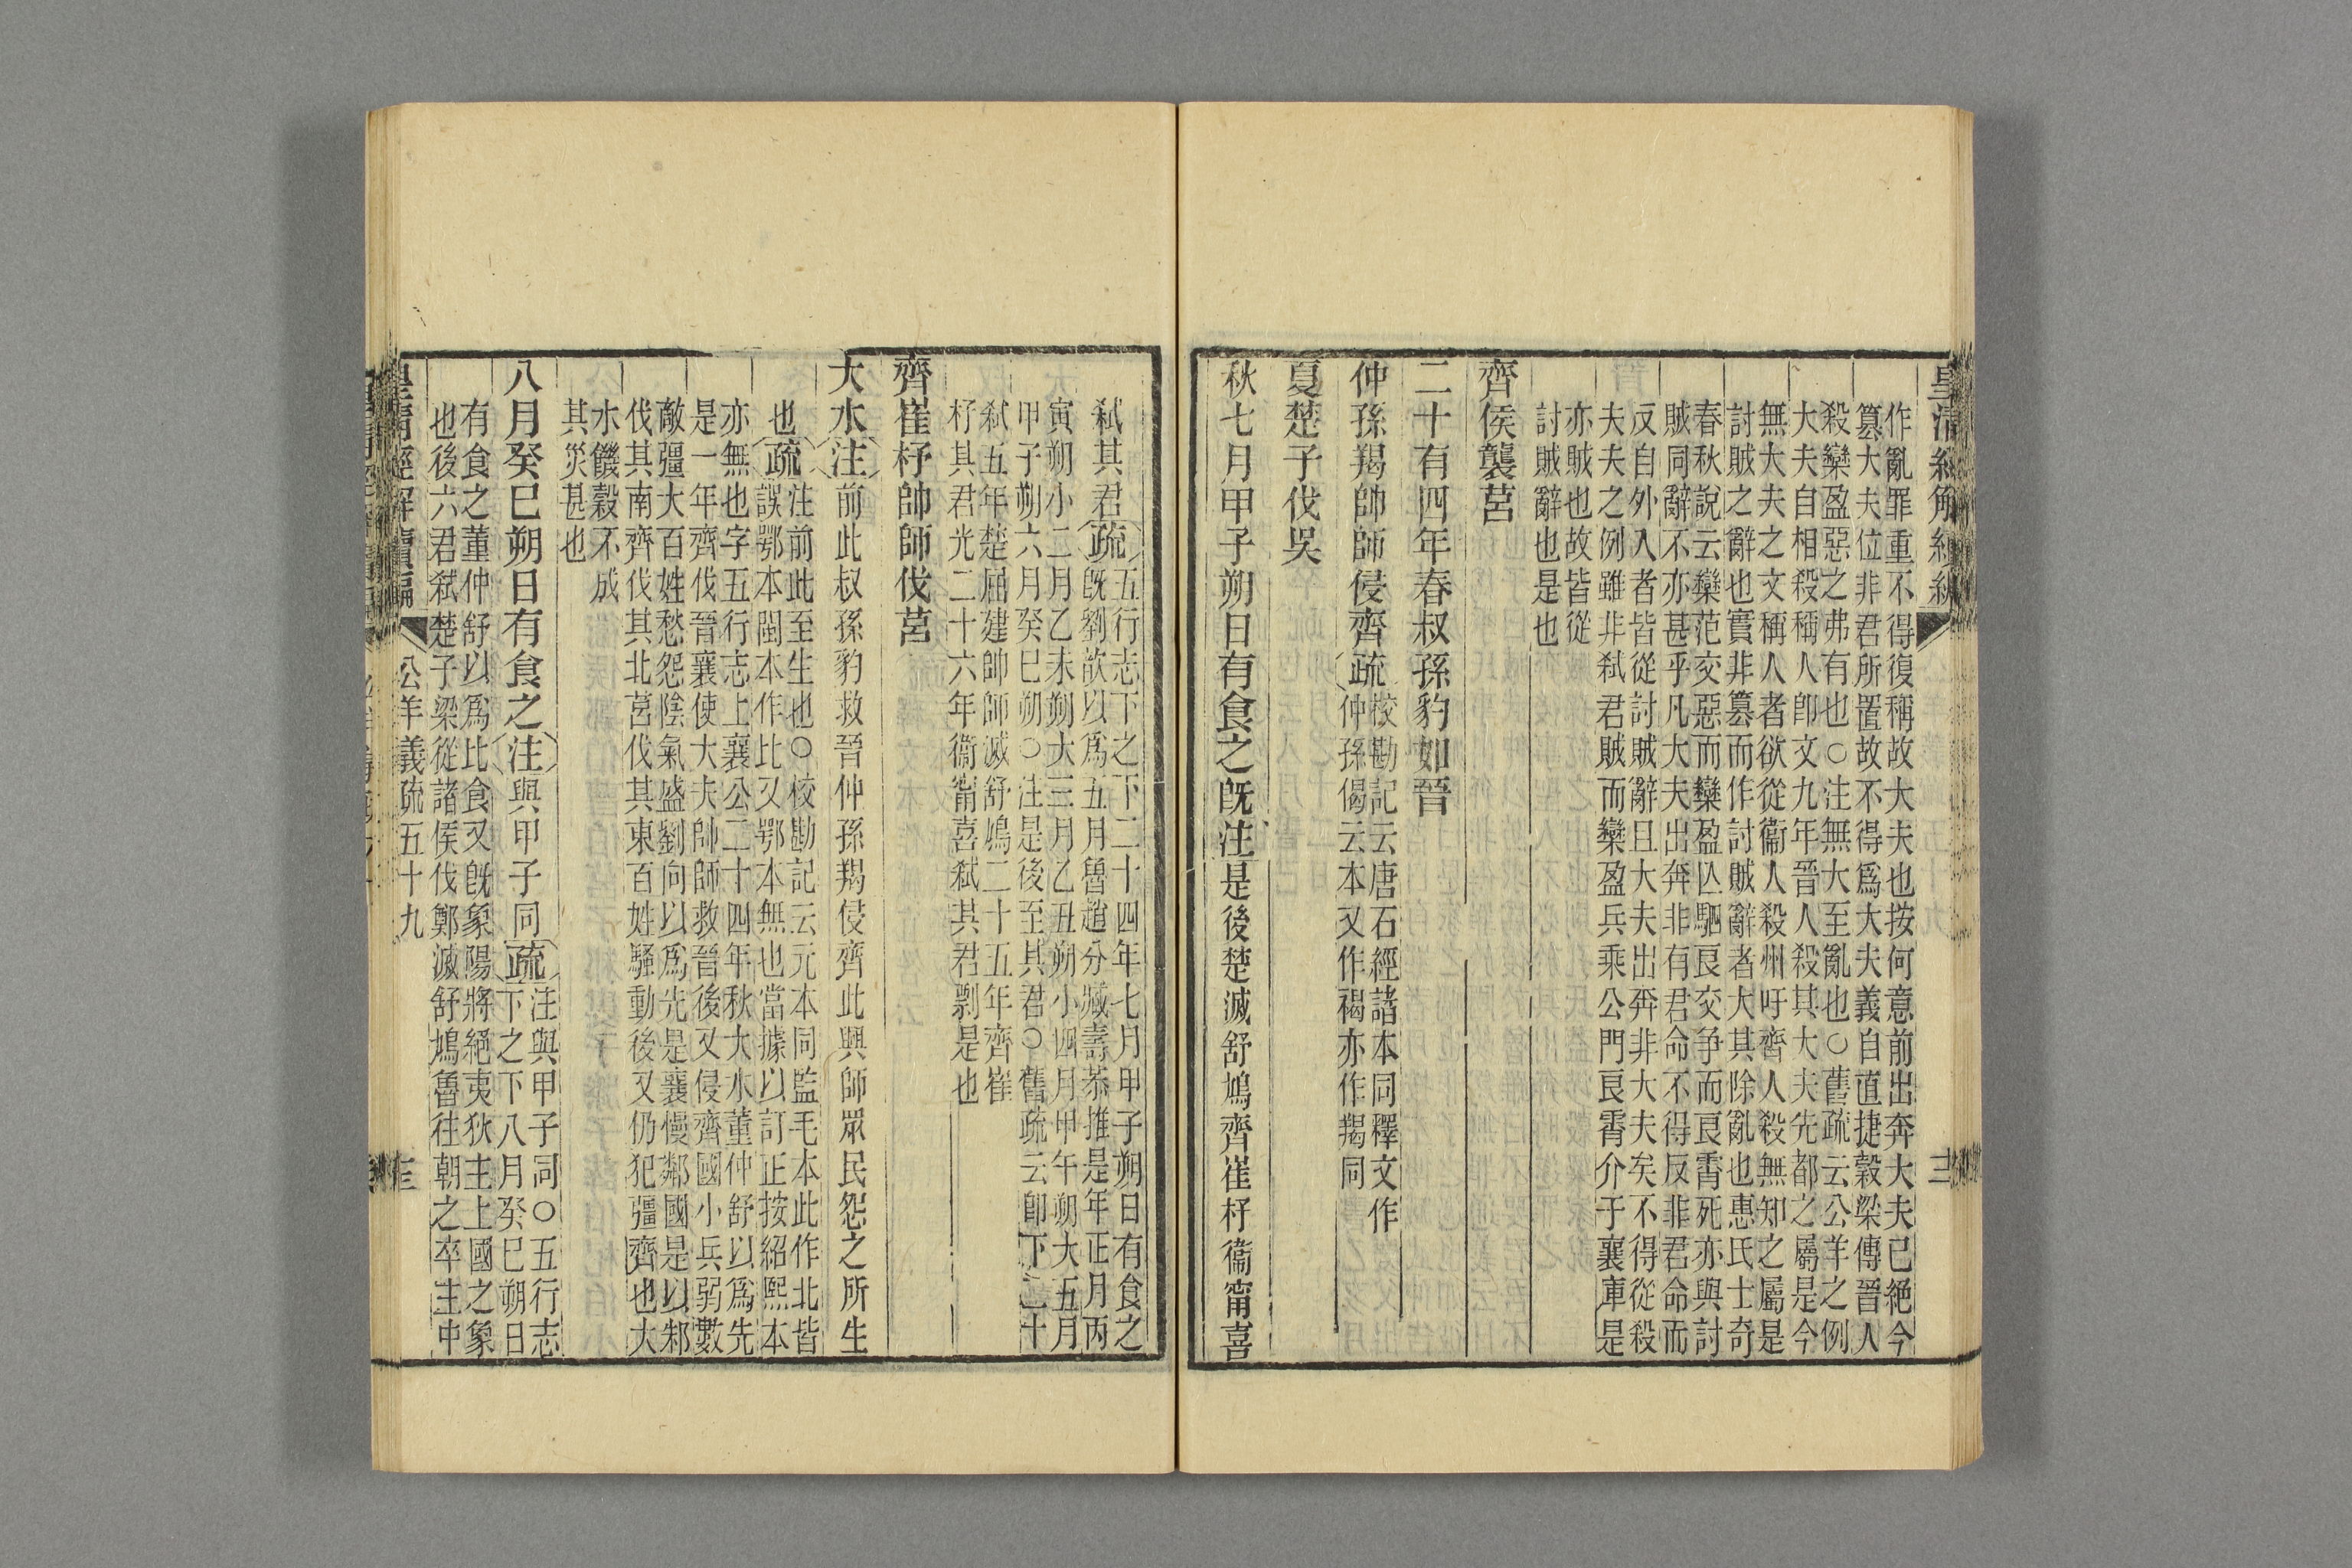 作亂罪重不得復稱故大夫也按何意前出奔大夫已絕今
篡大夫位非君所置故不得爲大夫義自直捷穀梁傳晉人
殺欒盈惡之弗有也○注無大至亂也○舊疏云公羊之例
大夫自相殺稱人卽文九年晉人殺其大夫先都之屬是今
無大夫之文稱人者欲從衞人殺州吁齊人殺無知之屬是
討賊之辭也實非篡而作討賊辭者大其除亂也惠氏士奇
春秋說云欒范交惡而欒盈亾駟良交爭而良霄死亦與討
賊同辭不亦甚乎凡大夫出奔非有君命不得反非君命而
反自外入者皆從討賊辭且大夫出奔非大夫矣不得從殺
夫夫之例雖非弒君賊而欒盈兵乘公門良霄介于襄庫是
亦賊也故皆從
討賊辭也是也
齊侯襲莒
二十有四年春叔孫豹如晉
仲孫羯帥師侵齊疏校勘記云唐石經諸本同釋文作
仲孫偈云本又作褐亦作羯同
夏楚子伐吳
秋七月甲子朔日有食之旣注是後楚滅舒鳩齊崔杼衞甯喜
弒其君疏五行志下之下二十四年七月甲子朔日有食之
旣劉歆以爲五月魯趙分臧壽恭推是年正月丙
寅朔小二月乙未朔大三月乙丑朔小四月甲午朔大五月
甲子朔六月癸巳朔○注是後至其君○舊疏云卽下二十
弒五年楚屈建帥師滅舒鳩二十五年齊崔
杼其君光二十六年衞甯喜弒其君剽是也
齊崔杼帥師伐莒
大水注前此叔孫豹救晉仲孫羯侵齊此興師眾民怨之所生
也疏注前此至生也○校勘記云元本同監毛本此作北皆
誤鄂本閩本作此又鄂本無也當據以訂正按紹熙本
亦無也字五行志上襄公二十四年秋大水董仲舒以爲先
是一年齊伐晉襄使大夫帥師救晉後又侵齊國小兵弱數
敵彊大百姓愁怨陰氣盛劉向以爲先是襄慢鄰國是以邾
伐其南齊伐其北莒伐其東百姓騷動後又仍犯彊齊也大
水饑穀不成
其災甚也
八月癸巳朔日有食之注與甲子同疏注與甲子同○五行志
下之下八月癸巳朔日
有食之董仲舒以爲比食又旣象陽將絕夷狄主上國之象
也後六君弒楚子梁從諸侯伐鄭滅舒鳩魯往朝之卒主中
皇淸經解續編 公羊義疏五十九